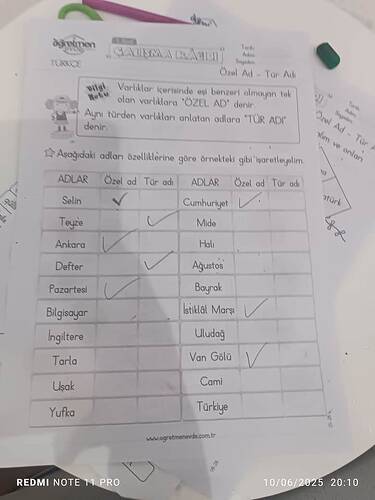 öğretmen
evde
ÇALIŞMA KAĞIDI
Tarih:
Adım:
Soyadım:
TÜRKÇE
Özel Ad - Tür Adı
Bilgi
Notu
Varlıklar içerisinde eşi benzeri olmayan tek
olan varlıklara "ÖZEL AD" denir.
Aynı türden varlıkları anlatan adlara "TÜR ADI"
denir.
Aşağıdaki adları özelliklerine göre örnekteki gibi işaretleyelim.
ADLAR Özel ad Tür adı ADLAR Özel ad Tür adı
Selin ✓ Cumhuriyet ✓
Teyze ✓ Mide
Ankara ✓ Halı
Defter ✓ Ağustos
Pazartesi ✓ Bayrak
Bilgisayar İstiklâl Marşı ✓
İngiltere Uludağ
Tarla Van Gölü ✓
Uşak Cami
Yufka Türkiye
www.ogretmenevde.com.tr
Tarih:
Adım:
Soyadım:
Özel Ad - Tür
REDMI NOTE 11 PRO
10/06/2025 20:10